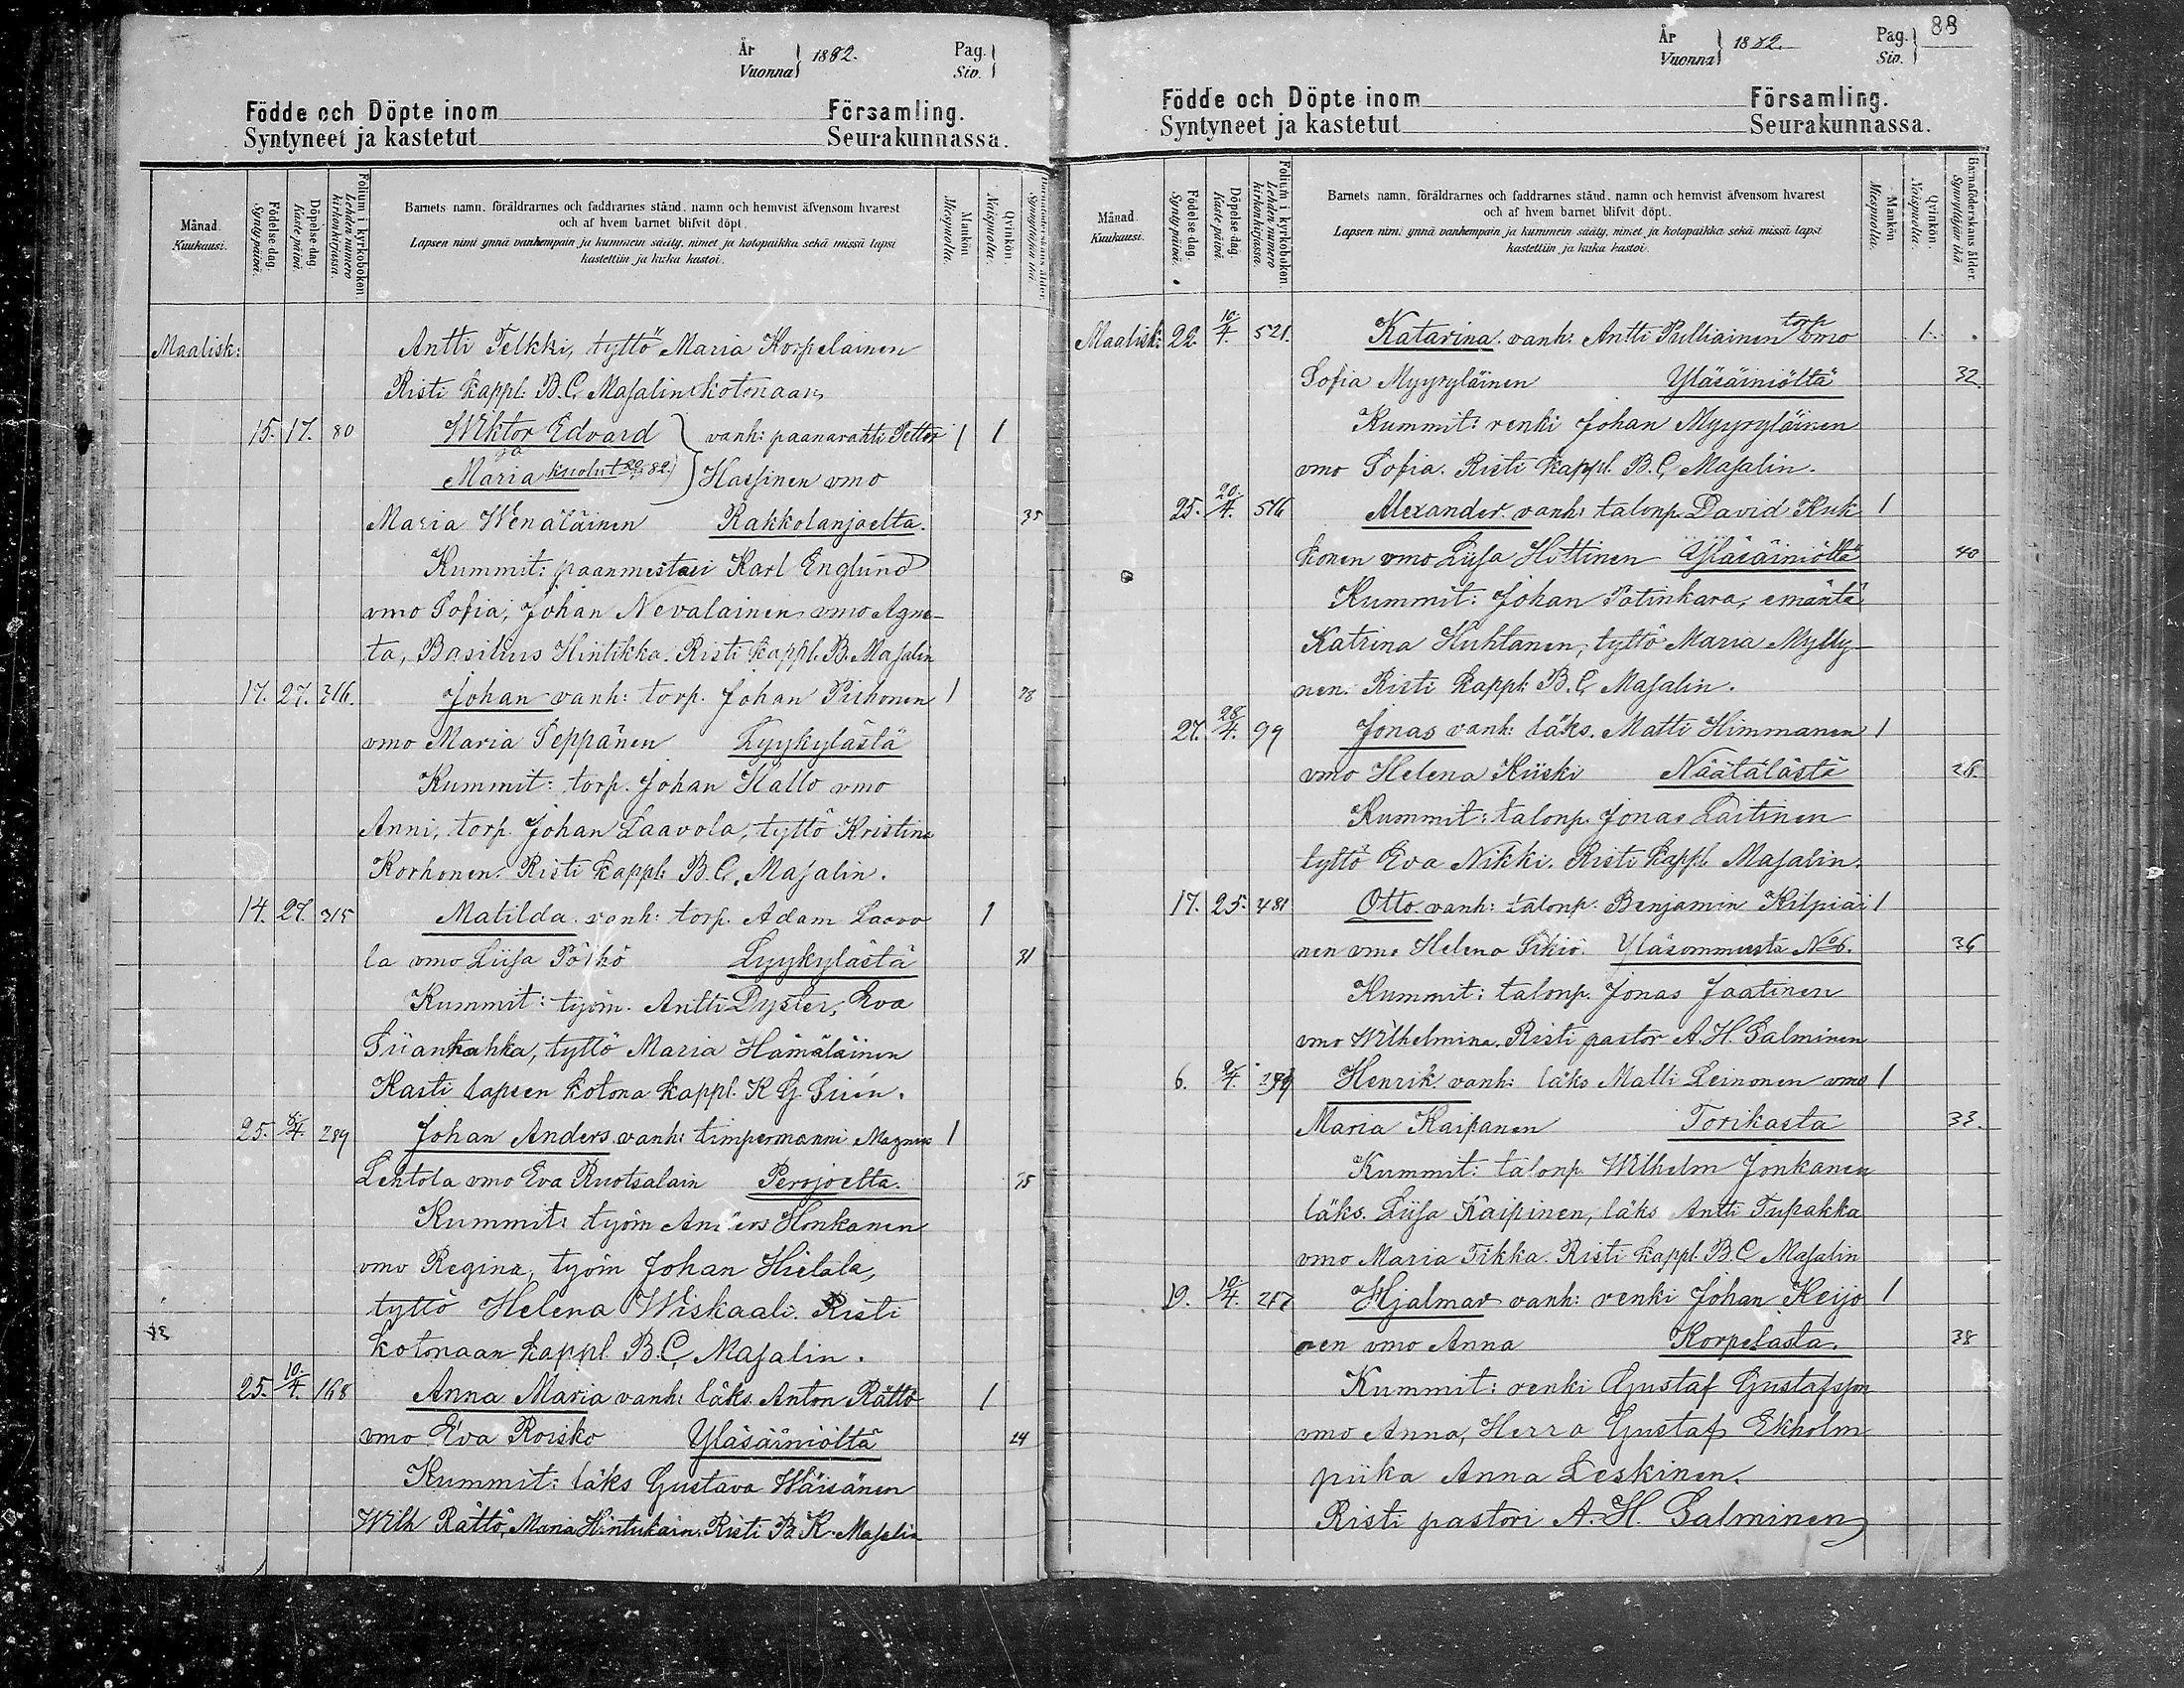 År
Vuonna } 1882.
Pag.
Siv. }
Födde och Döpte inom Församling.
Syntyneet ja kastetut Seurakunnassa.
Månad.
Kuukausi.
Födelse dag.
Synty päivä.
Döpelse dag.
Kaste päivä.
Folium i kyrkoboken
Lehden numero
kirkonkirjassa.
Barnets namn, föräldrarnes och faddrarnes stånd, namn och hemvist äfvensom hvarest
och af hvem barnet blifvit döpt.
Lapsen nimi ynnä vanhempain ja kummein sääty, nimet ja kotopaikka sekä missä lapsi
kastettiin ja kuka kastoi.
Mankön.
Miespuolia.
Qvinkön.
Naispuolia.
Barnaföderskans ålder.
Synnyttäjän ikä.
Maalisk: Antti Telkki, tyttö Maria Korpelainen
Risti kappl: B.C. Masalin kotonaan
15. 17. 80 Wiktor Edvard } vanh: paanavahti Petter 1 1
ja
Maria kuolut 82.) } Hassinen vmo
Maria Wenäläinen Rakkolanjoelta. 35
Kummit: paanmestari Karl Englund
vmo Sofia, Johan Nevalainen vmo Agne-
ta, Basilius Hintikka. Risti kappl. B. Masalin
17. 27. 316. Johan vanh: torp. Johan Pirhonen 1 28
vmo Maria Seppänen Lyykylästä
Kummit: torp. Johan Hallo vmo
Anni, torp. Johan Laavola, tyttö Kristina
Korhonen. Risti kappl: B.C. Masalin.
14. 27. 315 Matilda vanh: torp. Adam Laavo 1
la vmo Liisa Pöyhö Lyykylästä 31
Kummit: työm. Antti Dyster, Eva
Siiankahka, tyttö Maria Hämäläinen
Kasti lapsen kotona kappl. K G Sirén.
25. /4. 289 Johan Anders vanh: timpermanni Magnus 1
Lehtola vmo Eva Ruotsalain Perojoelta.
Kummit: työm Anders Honkanen
vmo Regina, työm Johan Hielala,
tyttö Helena Wiskaali. Risti
kotonaan kappl B.C. Masalin.
25. 10/4. 168 Anna Maria vanh: läks. Anton Rättö 1
vmo Eva Roisko Yläsäiniöltä 24
Kummit: läks Gustava Wäisänen
Wilh Rättö, Maria Hintukain. Risti B. K. Masalin
År
Vuonna } 1882.
Pag.
Siv. } 88
Födde och Döpte inom Församling.
Syntyneet ja kastetut Seurakunnassa.
Månad.
Kuukausi.
Födelse dag.
Synty päivä.
Döpelse dag.
Kaste päivä.
Folium i kyrkoboken.
Lehden numero
kirkonkirjassa.
Barnets namn, föräldrarnes och faddrarnes stånd, namn och hemvist äfvensom hvarest
och af hvem barnet blifvit döpt.
Lapsen nimi ynnä vanhempain ja kummein sääty, nimet ja kotopaikka sekä missä lapsi
kastettiin ja kuka kastoi.
Mankön
Miespuolia.
Qvinkön.
Naispuolia.
Barnaföderskans ålder.
Synnyttäjän ikä.
torp
Maalisk: 22. 10/4. 521. Katarina. vanh: Antti Pulliainen vmo 1.
Sofia Myyryläinen Yläsäiniöltä 32
Kummit: renki Johan Myyryläinen
vmo Sofia. Risti kappl. B.C. Masalin.
25. 20/4. 516 Alexander. vanh: talonp. David Kuk 1
konen vmo Liisa Hittinen Yläsäiniöltä 40
Kummit: Johan Potinkara, emäntä
Katrina Huhtanen, tyttö Maria Mylly-
nen. Risti kappl: B.C. Masalin.
27. 28/4. 99 Jonas vanh: läks. Matti Himmanen 1
vmo Helena Kiiski Näätälästä 28.
Kummit: talonp. Jonas Laitinen
tyttö Eva Nikki. Risti kappl. Masalin.
17. 25. 481 Otto. vanh: talonp. Benjamin Kilpiäi 1
nen vmo Helena Sikiö. Yläsommeesta No 6. 36
Kummit: talonp. Jonas Jaatinen
vmo Wilhelmina. Risti pastor A. H. Salminen
6. /4. Henrik vanh: läks Matti Leinonen vmo 1
Maria Kaipanen Torikasta 33.
Kummit: talonp. Wilhelm Jonkanen
läks. Liisa Kaipinen, läks Antti Tupakka
vmo Maria Tikka. Risti kappl. B.C Masalin
19. 10/4. 277 Hjalmar vanh: renki Johan Keijo 1
nen vmo Anna Korpelasta. 38
Kummit: renki Gustaf Gustafsson
vmo Anna, Herra Gustaf Ekholm
piika Anna Leskinen.
Risti pastori A. H. Salminen